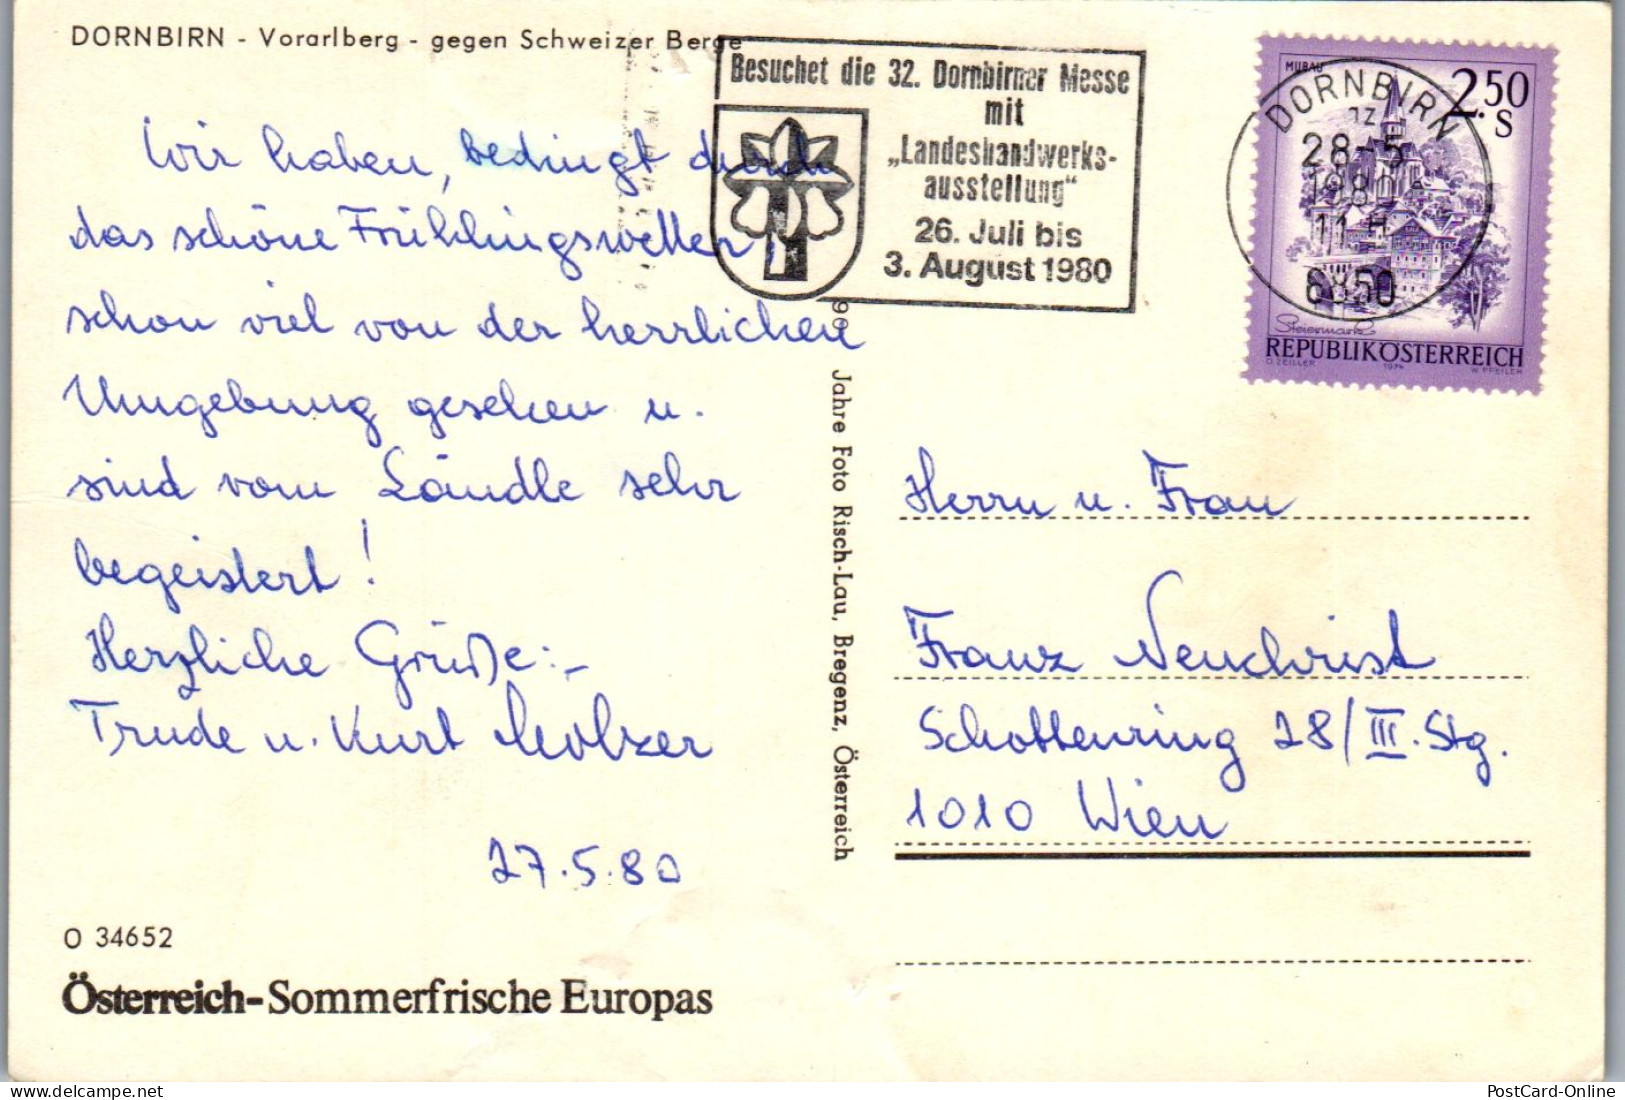 DORNBIRN - Vorarlberg - gegen Schweizer Berge
Wir haben, bedingt durch
das schöne Frühlingswetter,
schon viel von der herrlichen
Umgebung gesehen u.
sind vom Ländle sehr
begeistert!
Herzliche Grüße:-
Trude u. Kurt Molzer
27.5.80
O 34652
Österreich-Sommerfrische Europas
90 Jahre Foto Risch-Lau, Bregenz, Österreich
Besuchet die 32. Dornbirner Messe
mit
„Landeshandwerks-
ausstellung"
26. Juli bis
3. August 1980
DORNBIRN
28-5
1980
11 H
6850
MURAU
2.50
S
Steiermark
REPUBLIK ÖSTERREICH
O. ZEILLER 1974 W. PFEILER
Herrn u. Frau
Franz Neuchrist
Schottenring 28/III. Stg.
1010 Wien
PostCard-Ankauf.com
PostCard-Online